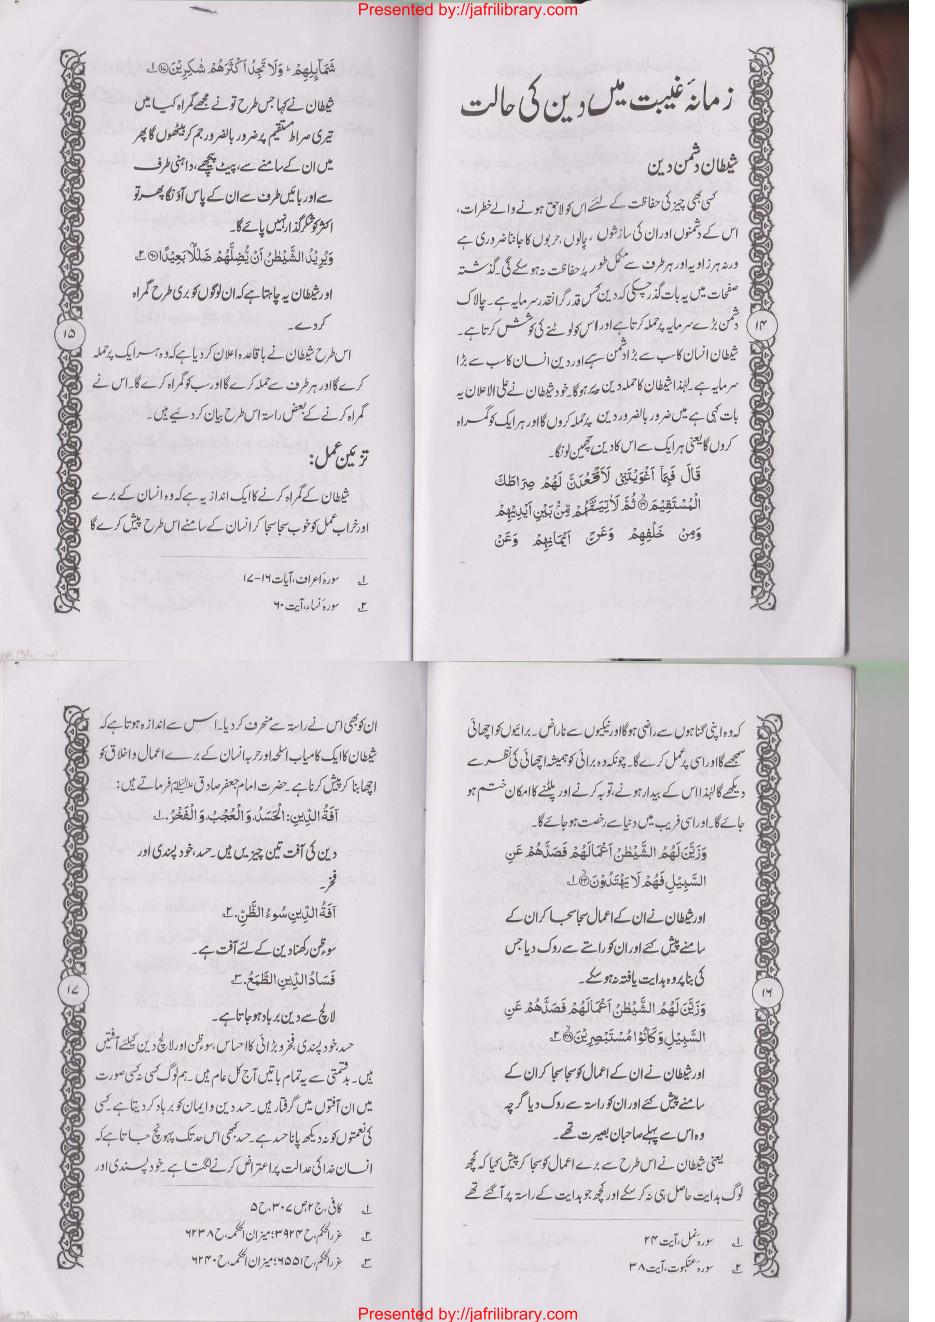 Presented by://jafrilibrary.com
زمانۂ غیبت میں دین کی حالت
شیطان دشمن دین
کسی بھی چیز کی حفاظت کے لئے اس کو لاحق ہونے والے خطرات،
اس کے دشمنوں اور ان کی سازشوں ، چالوں، حربوں کا جاننا ضروری ہے
ورنہ ہر زاویہ اور ہر طرف سے مکمل طور پر حفاظت نہ ہو سکے گی۔ گذشتہ
صفحات میں یہ بات گذر چکی کہ دین کس قدر گرانقدر سرمایہ ہے۔ چالاک
دشمن بڑے سرمایہ پر حملہ کرتا ہے اور اس کو لوٹنے کی کوشش کرتا ہے۔
شیطان انسان کا سب سے بڑا دشمن ہے اور دین انسان کا سب سے بڑا
سرمایہ ہے۔ لہٰذا شیطان کا حملہ دین پر ہوگا۔ خود شیطان نے علی الاعلان یہ
بات کہی ہے میں ضرور بالضرور دین پر حملہ کروں گا اور ہر ایک کو گمراہ
کروں گا یعنی ہر ایک سے اس کا دین چھین لونگا۔
قَالَ فَبِمَآ اَغْوَيْتَنِيْ لَاَقْعُدَنَّ لَهُمْ صِرَاطَكَ
الْمُسْتَقِيْمَ ﴿۱۶﴾ ثُمَّ لَاٰتِيَنَّهُمْ مِّنْۢ بَيْنِ اَيْدِيْهِمْ
وَمِنْ خَلْفِهِمْ وَعَنْ اَيْمَانِهِمْ وَعَنْ
۱۴
شَمَآئِلِهِمْ ؕ وَلَا تَجِدُ اَكْثَرَهُمْ شٰكِرِيْنَ ﴿۱۷﴾ ۱؎
شیطان نے کہا جس طرح تو نے مجھے گمراہ کیا میں
تیری صراط مستقیم پر ضرور بالضرور جم کر بیٹھوں گا پھر
میں ان کے سامنے سے، پیٹھ پیچھے، داہنی طرف
سے اور بائیں طرف سے ان کے پاس آؤنگا پھر تو
اکثر کو شکر گذار نہیں پائے گا۔
وَيُرِيْدُ الشَّيْطٰنُ اَنْ يُّضِلَّهُمْ ضَلٰلًاۢ بَعِيْدًا ﴿۶۰﴾ ۲؎
اور شیطان یہ چاہتا ہے کہ ان لوگوں کو بری طرح گمراہ
کر دے۔
اس طرح شیطان نے باقاعدہ اعلان کر دیا ہے کہ وہ ہر ایک پر حملہ
کرے گا اور ہر طرف سے حملہ کرے گا اور سب کو گمراہ کرے گا۔ اس نے
گمراہ کرنے کے بعض راستہ اس طرح بیان کر دئیے ہیں۔
تزئین عمل:
شیطان کے گمراہ کرنے کا ایک انداز یہ ہے کہ وہ انسان کے برے
اور خراب عمل کو خوب سجا سجا کر انسان کے سامنے اس طرح پیش کرے گا
۱؎ سورہ اعراف، آیات ۱۶-۱۷
۲؎ سورہ نساء، آیت ۶۰
۱۵
کہ وہ اپنی گناہوں سے راضی ہوگا اور نیکیوں سے ناراض۔ برائیوں کو اچھائی
سمجھے گا اور اسی پر عمل کرے گا۔ چونکہ وہ برائی کو ہمیشہ اچھائی کی نظر سے
دیکھے گا لہٰذا اس کے بیدار ہونے، توبہ کرنے اور پلٹنے کا امکان ختم ہو
جائے گا۔ اور اسی فریب میں دنیا سے رخصت ہو جائے گا۔
وَزَيَّنَ لَهُمُ الشَّيْطٰنُ اَعْمَالَهُمْ فَصَدَّهُمْ عَنِ
السَّبِيْلِ فَهُمْ لَا يَهْتَدُوْنَ ﴿۲۴﴾ ۱؎
اور شیطان نے ان کے اعمال سجا سجا کر ان کے
سامنے پیش کئے اور ان کو راستے سے روک دیا جس
کی بنا پر وہ ہدایت یافتہ نہ ہو سکے۔
وَزَيَّنَ لَهُمُ الشَّيْطٰنُ اَعْمَالَهُمْ فَصَدَّهُمْ عَنِ
السَّبِيْلِ وَكَانُوْا مُسْتَبْصِرِيْنَ ﴿۳۸﴾ ۲؎
اور شیطان نے ان کے اعمال کو سجا سجا کر ان کے
سامنے پیش کئے اور ان کو راستہ سے روک دیا گرچہ
وہ اس سے پہلے صاحبان بصیرت تھے۔
یعنی شیطان نے اس طرح سے برے اعمال کو سجا کر پیش کیا کہ کچھ
لوگ ہدایت حاصل ہی نہ کر سکے اور کچھ جو ہدایت کے راستہ پر آگئے تھے
۱؎ سورہ نمل، آیت ۲۴
۲؎ سورہ عنکبوت، آیت ۳۸
۱۶
ان کو بھی اس نے راستہ سے منحرف کر دیا۔ اس سے اندازہ ہوتا ہے کہ
شیطان کا ایک کامیاب اسلحہ اور حربہ انسان کے برے اعمال و اخلاق کو
اچھا بنا کر پیش کرنا ہے۔ حضرت امام جعفر صادق علیہ السلام فرماتے ہیں:
آفَةُ الدِّيْنِ: اَلْحَسَدُ وَ الْعُجْبُ وَ الْفَخْرُ. ۱؎
دین کی آفت تین چیزیں ہیں۔ حسد، خود پسندی اور
فخر۔
آفَةُ الدِّيْنِ سُوءُ الظَّنِّ. ۲؎
سوء ظن رکھنا دین کے لئے آفت ہے۔
فَسَادُ الدِّيْنِ الطَّمَعُ. ۳؎
لالچ سے دین برباد ہو جاتا ہے۔
حسد، خود پسندی، فخر و بڑائی کا احساس، سوء ظن اور لالچ دین کیلئے آفتیں
ہیں۔ بدقسمتی سے یہ تمام باتیں آج کل عام ہیں۔ ہم لوگ کسی نہ کسی صورت
میں ان آفتوں میں گرفتار ہیں۔ حسد دین و ایمان کو برباد کر دیتا ہے۔ کسی
کی نعمتوں کو نہ دیکھ پانا حسد ہے۔ حسد کبھی اس حد تک پہونچ جاتا ہے کہ
انسان خدا کی عدالت پر اعتراض کرنے لگتا ہے۔ خود پسندی اور
۱؎ کافی، ج ۲ ص ۳۰۷، ح ۵
۲؎ غرر الحکم، ح ۳۹۲۴؛ میزان الحکمہ، ح ۶۲۳۸
۳؎ غرر الحکم، ح ۶۵۵۱؛ میزان الحکمہ، ح ۶۲۴۰
۱۷
Presented by://jafrilibrary.com